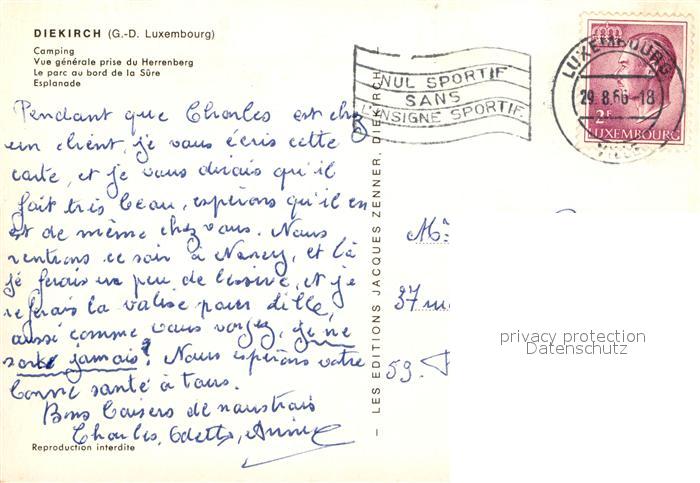 DIEKIRCH (G.-D. Luxembourg)
Camping
Vue générale prise du Herrenberg
Le parc au bord de la Sûre
Esplanade
NUL SPORTIF
SANS
L'INSIGNE SPORTIF
LUXEMBOURG
29.8.66-18
VILLE
2F
LUXEMBOURG
Pendant que Charles est chez
un client, je vous écris cette
carte, et je vous dirais qu'il
fait très beau, espérons qu'il en
est de même chez vous. Nous
rentrons ce soir à Nancy, et là
je ferais un peu de lessive, et je
referais la valise pour Lille,
aussi comme vous voyez, je ne
sors jamais! Nous espérons votre
bonne santé à tous.
Bons baisers de nous trois
Charles, Odette, Annie
Reproduction interdite
— LES EDITIONS JACQUES ZENNER, DIEKIRCH —
37
59.
privacy protection
Datenschutz